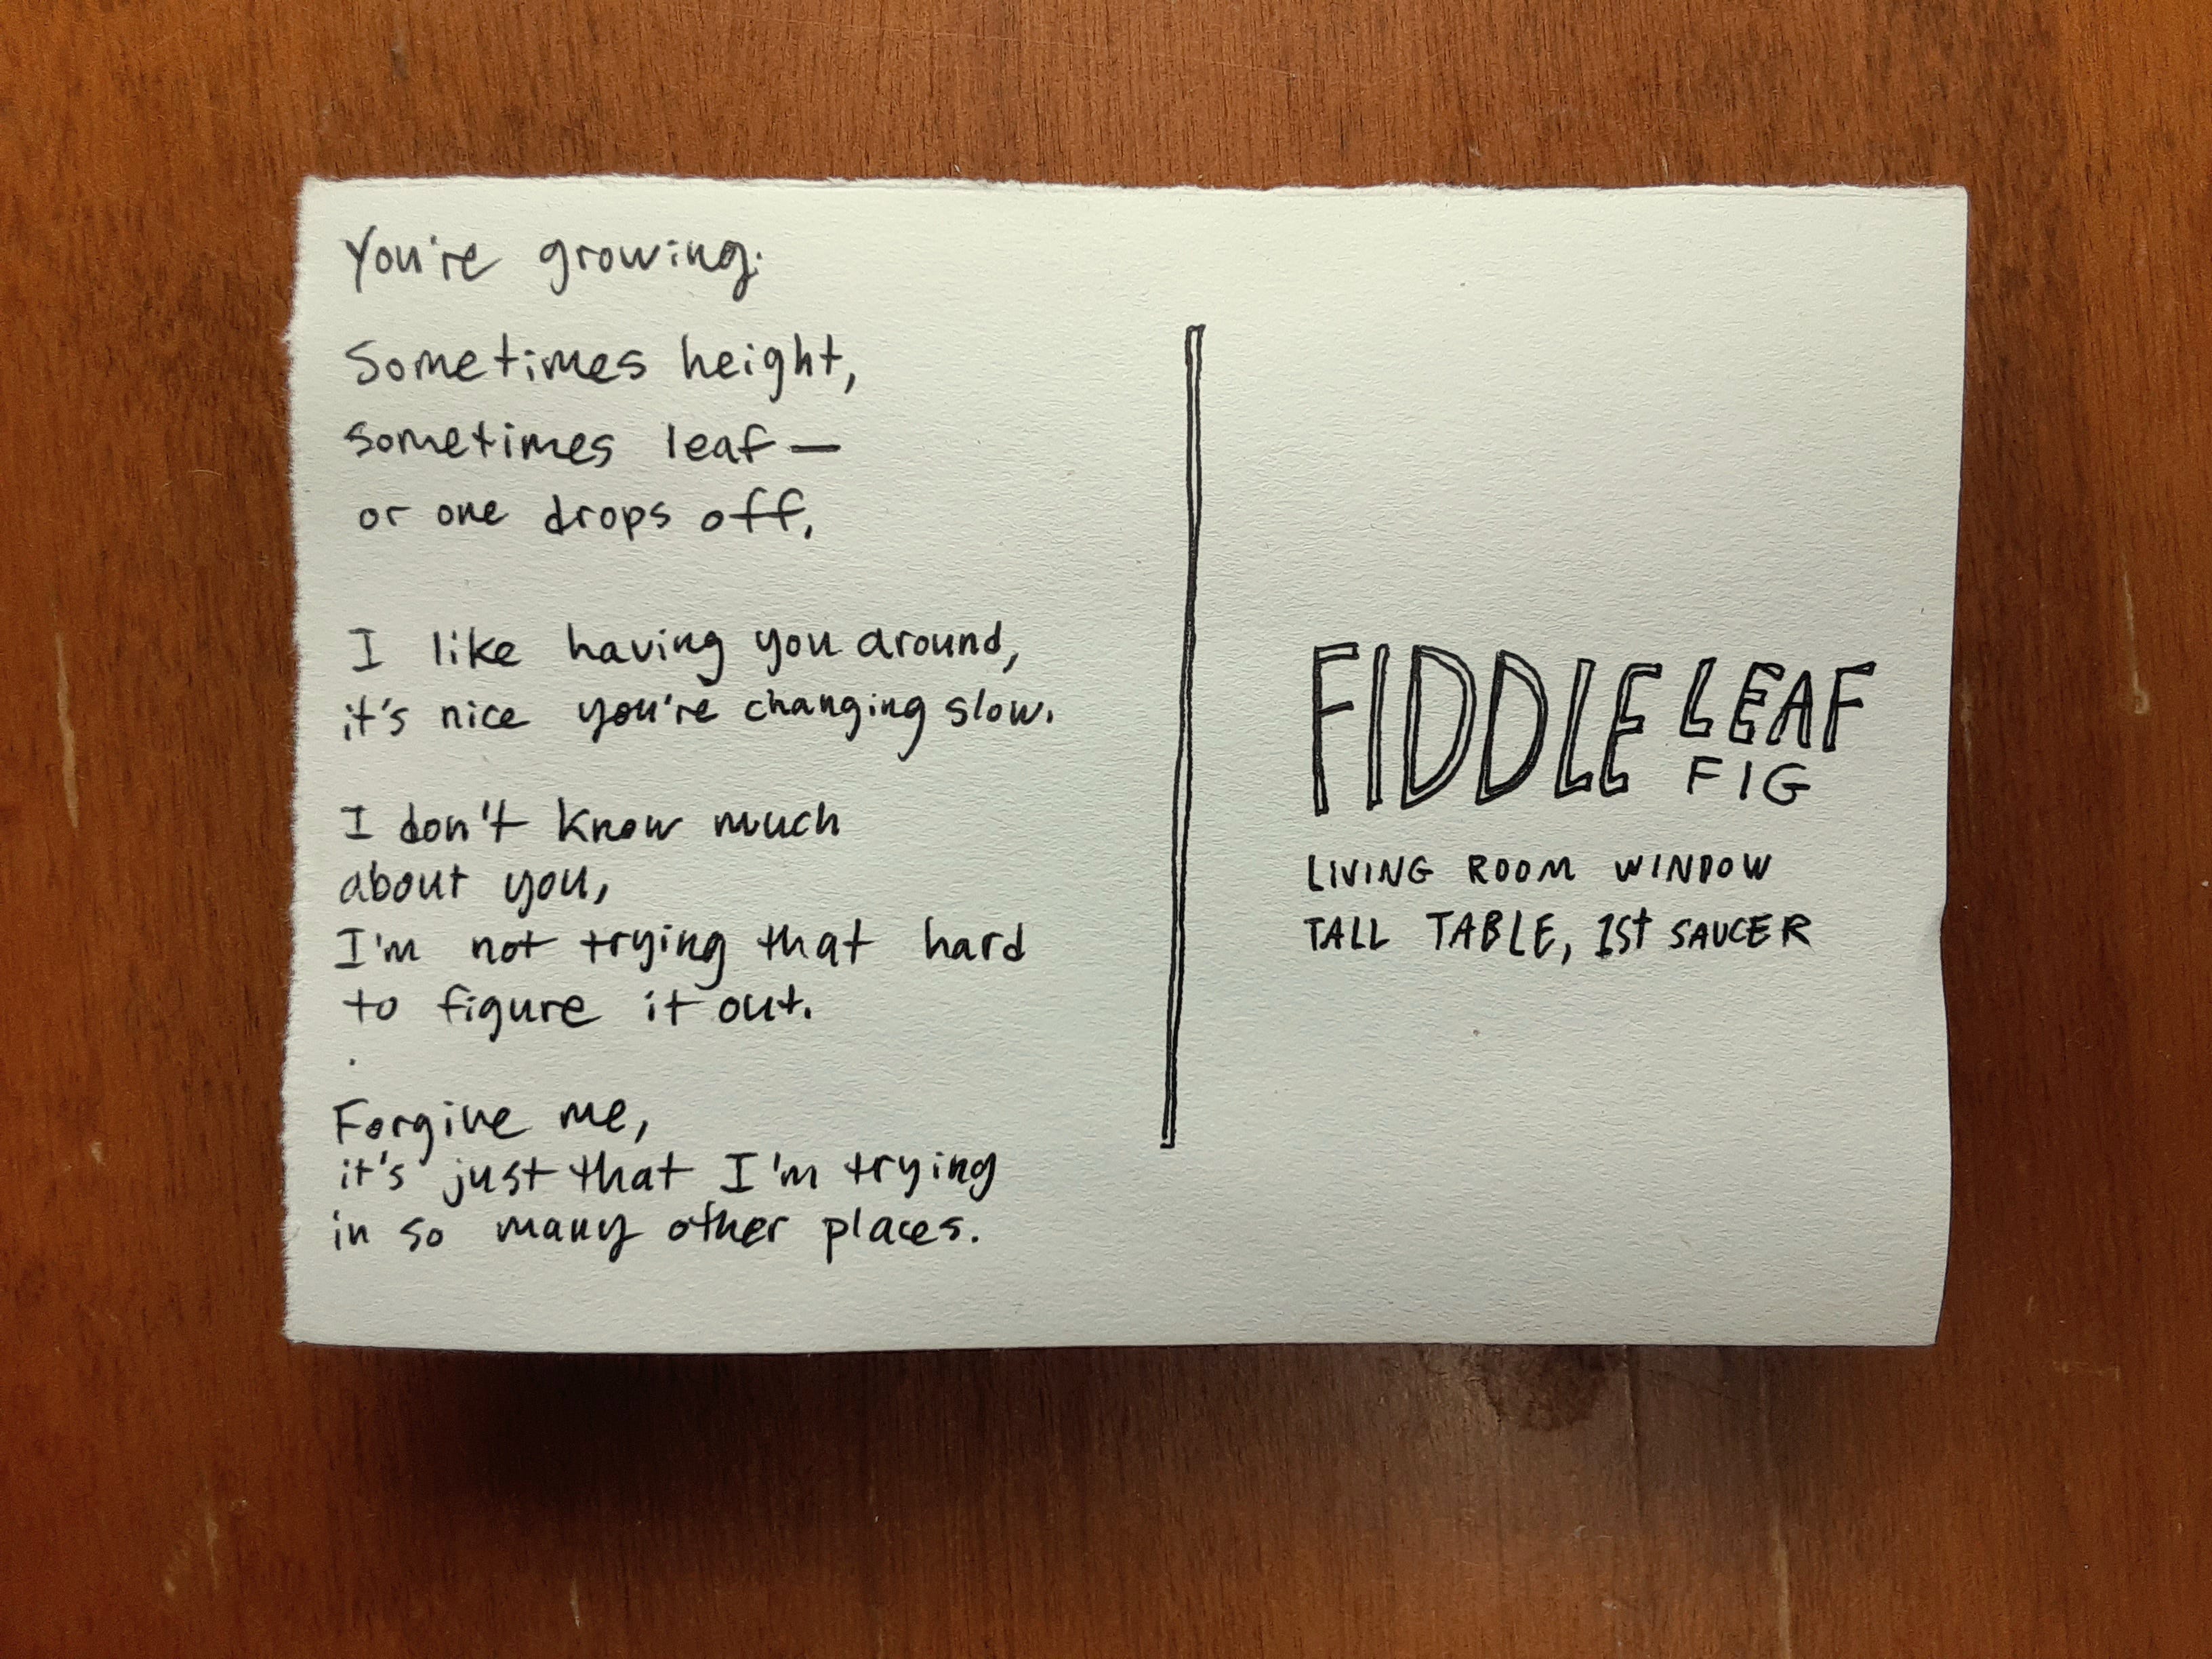 You're growing.
Sometimes height,
sometimes leaf—
or one drops off.
I like having you around,
it's nice you're changing slow.
I don't know much
about you,
I'm not trying that hard
to figure it out.
.
Forgive me,
it's just that I'm trying
in so many other places.
FIDDLE LEAF
FIG
LIVING ROOM WINDOW
TALL TABLE, 1St SAUCER